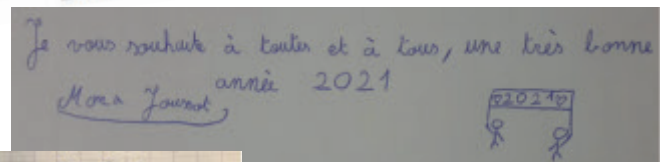 Je vous souhaite à toutes et à tous, une très bonne
année 2021
♡2021♡